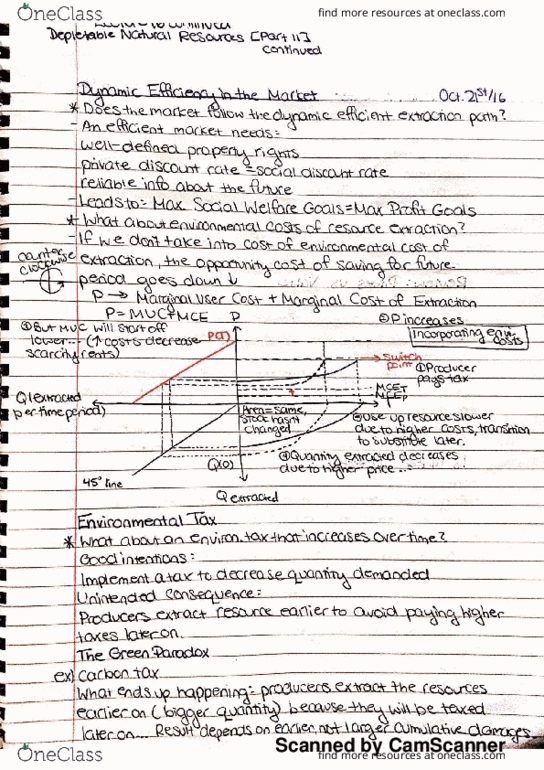 OneClass
find more resources at oneclass.com
Depletable Natural Resources [Part II]
continued
Dynamic Efficiency in the Market
Oct. 21st/16
* Does the market follow the dynamic efficient extraction path?
- An efficient market needs:
well-defined property rights
private discount rate = social discount rate
reliable info about the future
- Leads to: Max. Social Welfare Goals = Max Profit Goals
* What about environmental costs of resource extraction?
- If we don't take into cost of environmental cost of
counter clockwise
extraction, the opportunity cost of saving for future
period goes down ↓
P → Marginal User Cost + Marginal Cost of Extraction
P = MUC + MCE
P
② P increases
Incorporating env. costs
③ But MUC will start off
lower... (↑ costs decrease
scarcity rents)
P(t)
Switch point
① Producer
pays tax
MCE+T
MCE
Q extracted
(per time period)
T
Area = same,
stock hasn't
changed
Use up resource slower
due to higher costs, transition
to substitute later.
④ Quantity extracted decreases
due to higher price...
Q(t)
45° line
Q extracted
Environmental Tax
* What about an environ. tax that increases over time?
Good intentions:
Implement a tax to decrease quantity demanded
Unintended Consequence:
Producers extract resource earlier to avoid paying higher
taxes later on.
The Green Paradox
ex) carbon tax
What ends up happening = producers extract the resources
earlier on (bigger quantity) because they will be taxed
later on... Result depends on earlier, not larger cumulative damages.
Scanned by CamScanner
OneClass
find more resources at oneclass.com